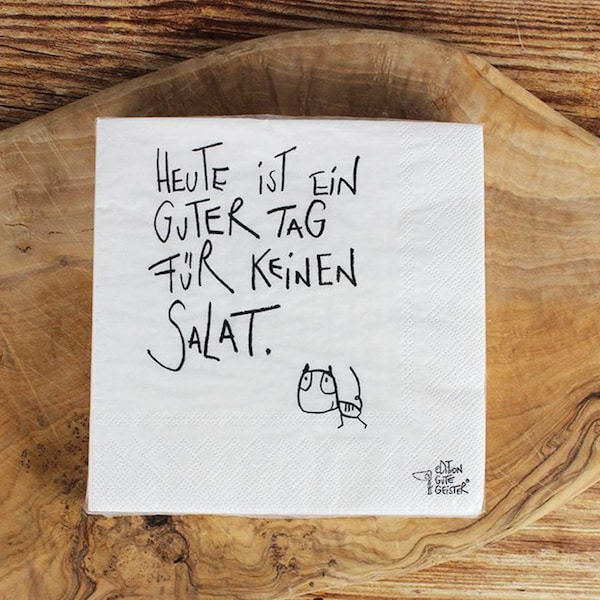 HEUTE iST EiN
GUTER TAG
FÜR KEiNEN
SALAT.
EDiTiON
GUTE
GEiSTER®